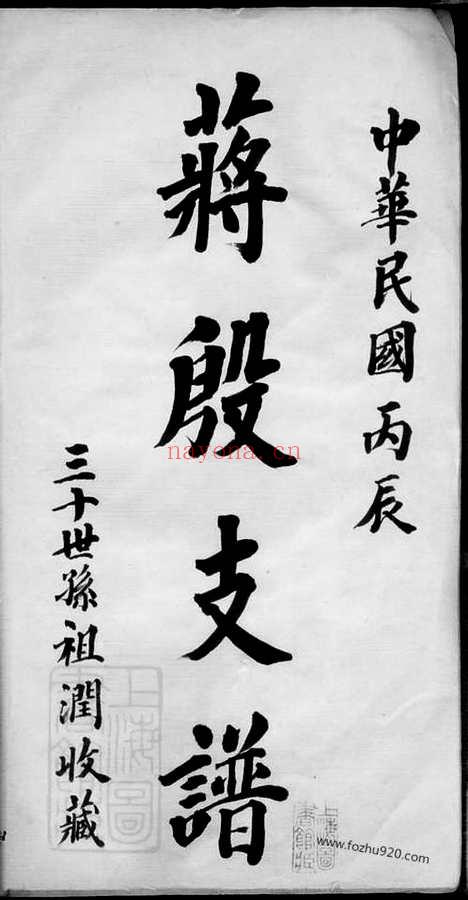 中華民國丙辰
蔣殷支譜
三十世孫祖潤收藏
nayona.cn
上海圖書館藏
www.fozhu920.com